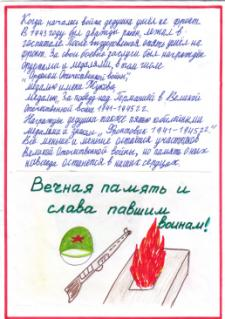 Когда началась война дедушка ушёл на фронт.
В 1943 году был дважды ранен, лежал в
госпитале. После выздоровления опять ушёл на
фронт. За свои боевые заслуги был награждён
орденами и медалями, в том числе
"Орденом Отечественной войны",
медалью имени Жукова,
Медалью За победу над Германией в Великой
отечественной войне 1941-1945 г.г.
Награждён дедушка также пятью юбилейными
медалями и знаком "Фронтовик 1941-1945 г.г."
Всё меньше и меньше остаётся участников
Великой Отечественной войны, но память о них
навсегда останется в наших сердцах.
Вечная память и
слава павшим
воинам!